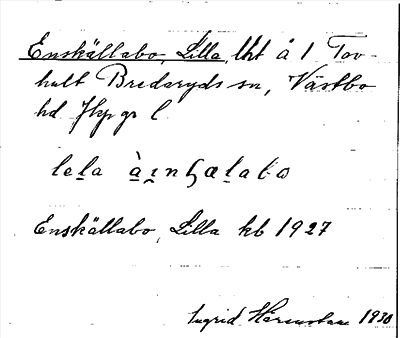 Enskällabo, Lilla, lht å 1 Tov-
hult Bredaryds sn, Västbo
hd Jkpgs l
lela
Enskällabo, Lilla kb 1927
Ingrid 1930